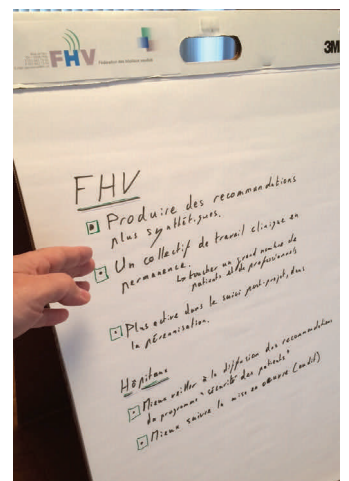 FHV
3M
FHV
Produire des recommandations
plus synthétiques.
Un collectif de travail clinique en
permanence.
↳ toucher un grand nombre de
patients et de professionnels
Plus active dans le suivi post-projet, dans
la pérennisation.
Hôpitaux
Mieux veiller à la diffusion des recommandations
du programme "sécurité des patients"
Mieux suivre la mise en oeuvre (audit)